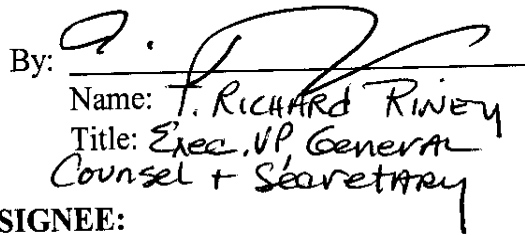 By:
Name: T. RICHARD RINEY
Title: Exec. VP, General
Counsel + Secretary
SIGNEE: